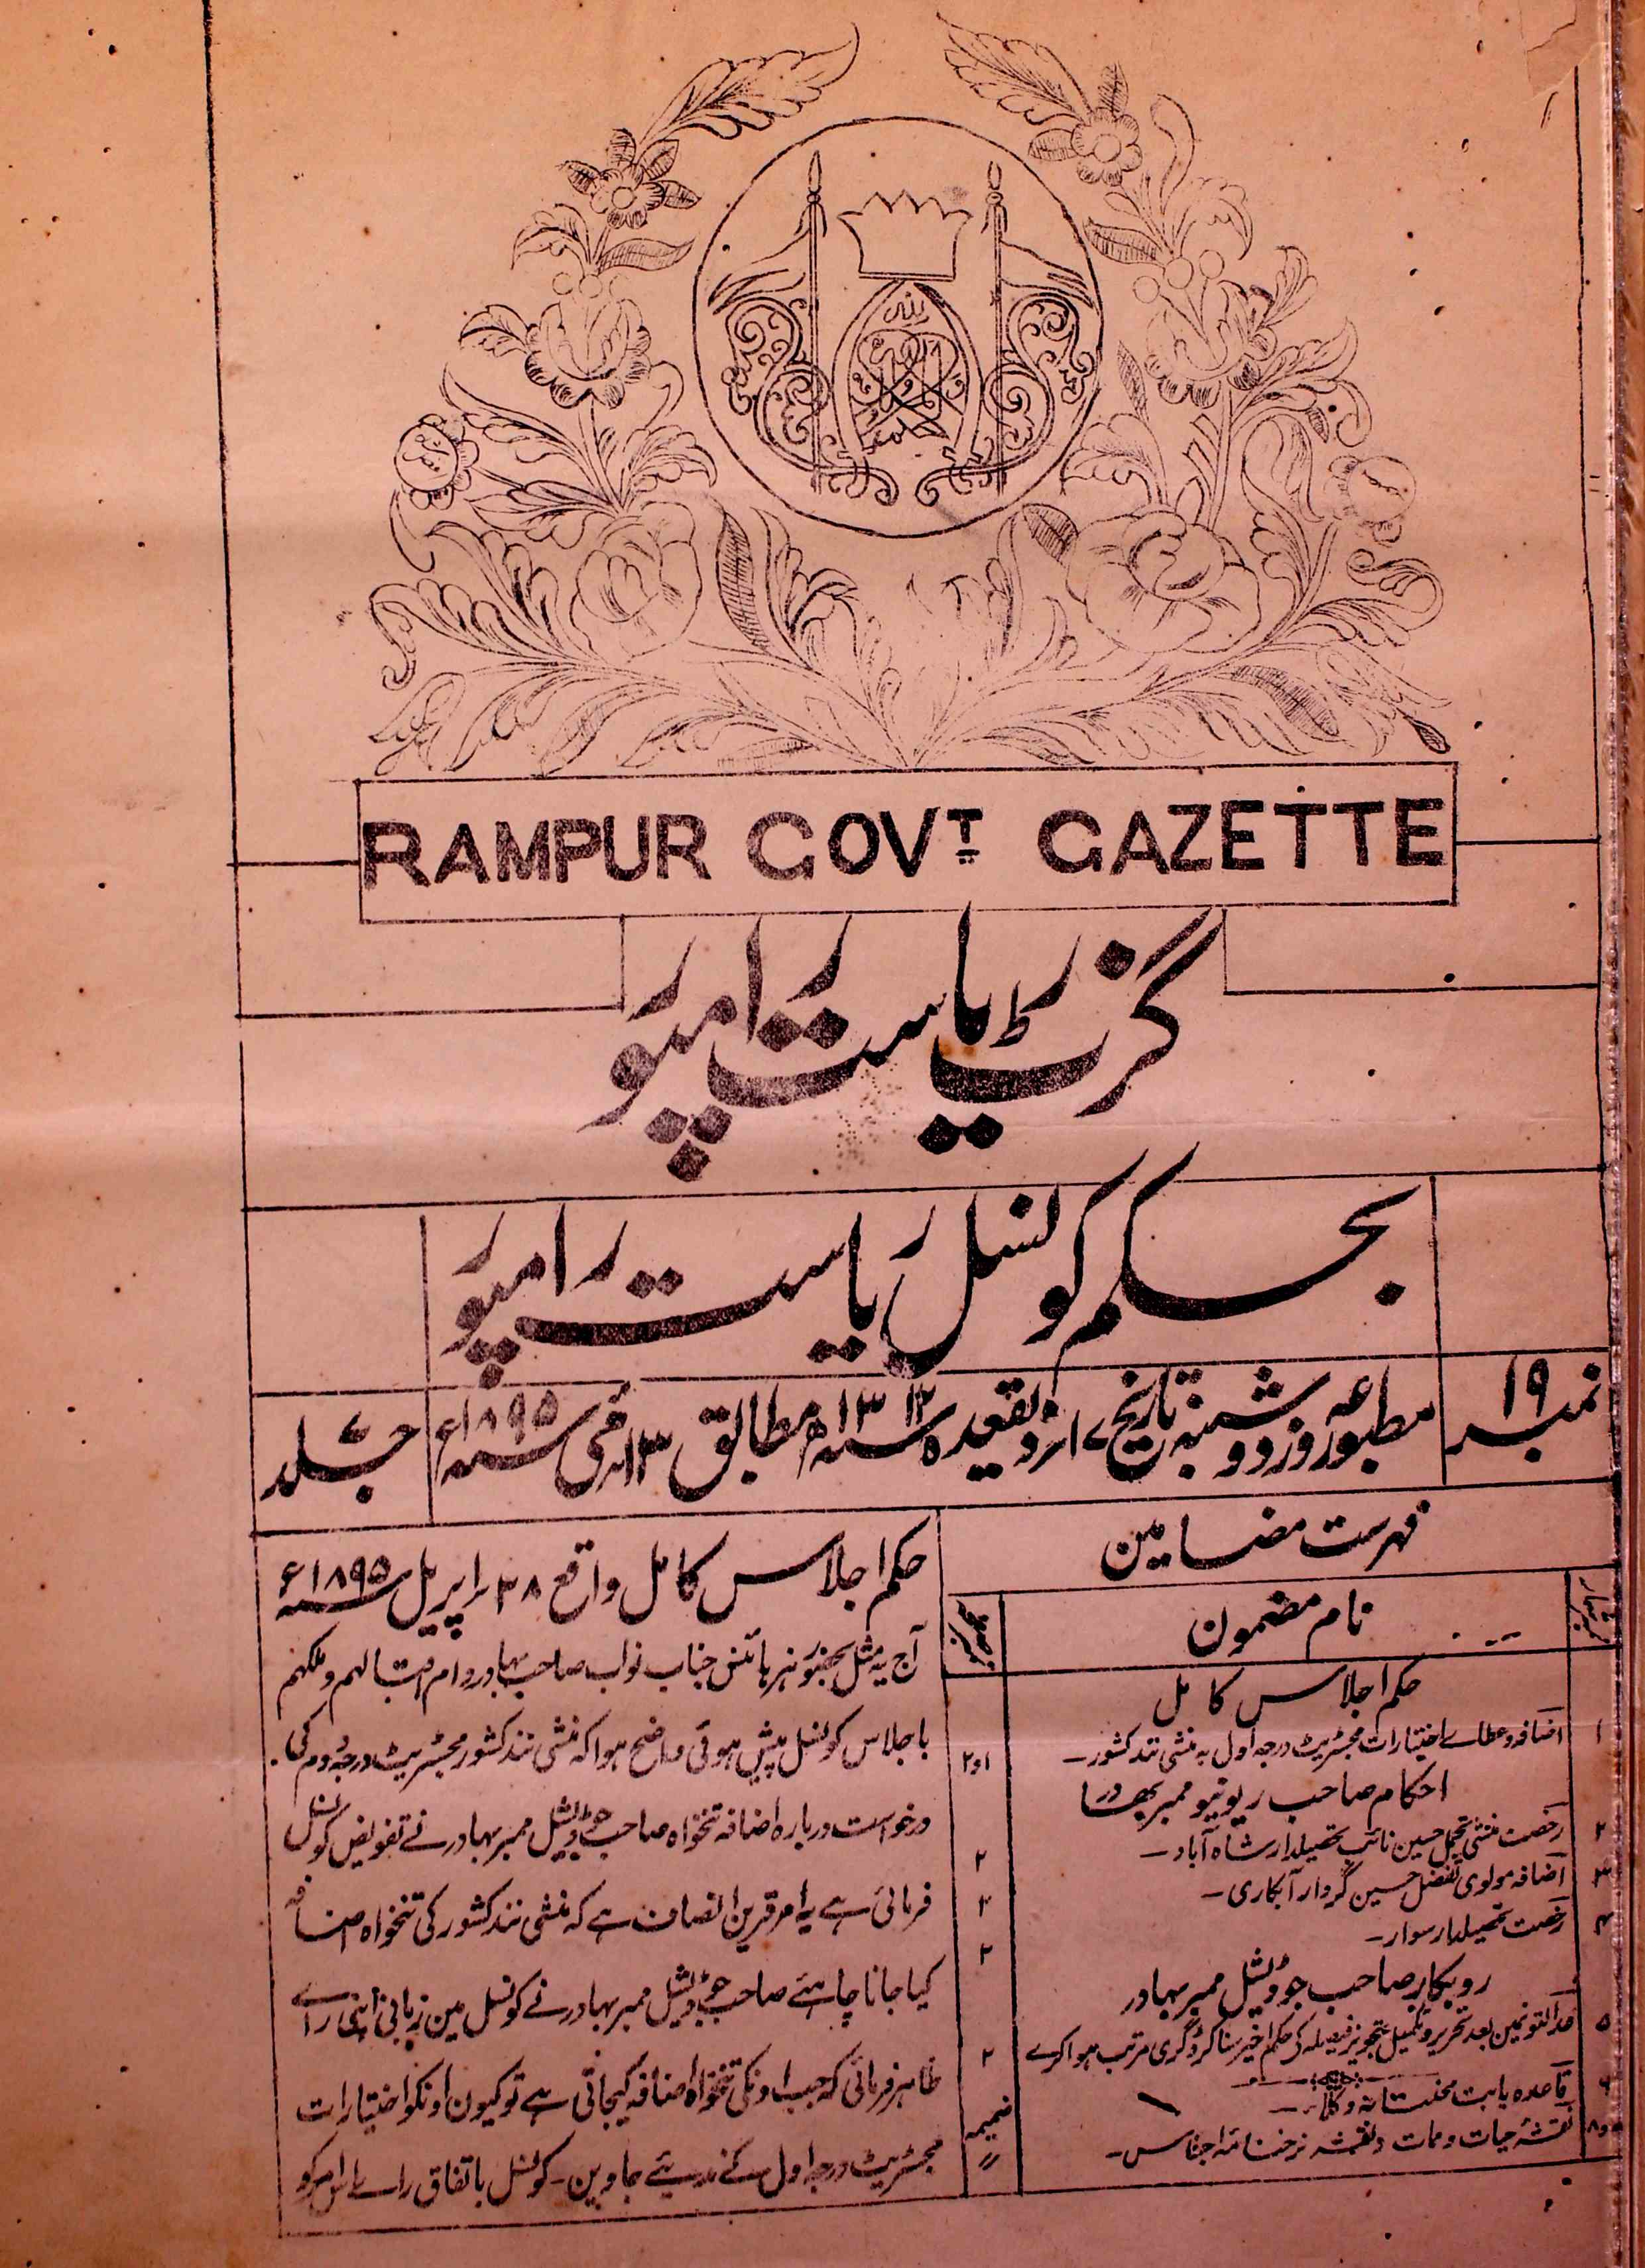 RAMPUR GOVT GAZETTE
گزٹ ریاست رامپور
بحکم کونسل ریاست رامپور
نمبر ۱۹
مطبوعہ روز دو شنبہ تاریخ ۱۷ ذیقعدہ سنہ ۱۳۱۲ھ مطابق ۱۳ مئی سنہ ۱۸۹۵ء
جلد ۷
فہرست مضامین
نام مضمون
حکم اجلاس کامل
۱ اضافہ و عطاے اختیارات مجسٹریٹ درجہ اول بہ منشی نند کشور۔ ۱و۲
احکام صاحب ریونیو ممبر بہادر
۲ رخصت منشی تجمل حسین نائب تحصیلدار شاہ آباد۔ ۲
۳ اضافہ مولوی تفضل حسین گرداور آبکاری۔ ۲
۴ رخصت تحصیلدار سوار۔ ۲
روبکار صاحب جوڈیشل ممبر بہادر
۵ عدالتونمین بعد تحریر و تکمیل تجویز فیصلہ کر حکم اخیر سنا کر ڈگری مرتب ہوا کرے ۲
۶ قاعدہ بابت محنتانہ وکلاء۔ ضمیمہ
۷و۸ نقشہ حیات و ممات و نقشہ نرخنامہ اجناس۔ //
حکم اجلاس کامل واقع ۲۸ اپریل سنہ ۱۸۹۵ء
آج یہ مثل بحضور ہز ہائنس جناب نواب صاحب بہادر دام اقبالہم و ملکہم
باجلاس کونسل پیش ہوئی واضح ہوا کہ منشی نند کشور مجسٹریٹ درجہ دوم کی
درخواست دربارہ اضافہ تنخواہ صاحب جوڈیشل ممبر بہادر نے تفویض کونسل
فرمائی ہے یہ امر قرین انصاف ہے کہ منشی نند کشور کی تنخواہ اضافہ
کیا جانا چاہئے صاحب جوڈیشل ممبر بہادر نے کونسل مین زبانی اپنی راے
ظاہر فرمائی کہ جب اونکی تنخواہ اضافہ کیجاتی ہے تو کیون اونکو اختیارات
مجسٹریٹ درجہ اول کے ندیئے جاوین۔ کونسل باتفاق راے اس امر کو